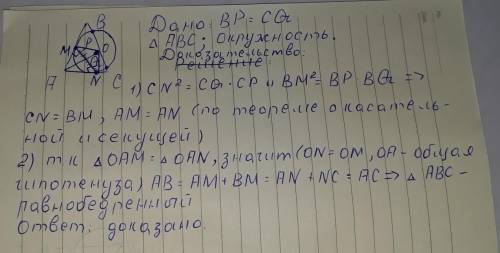 B
P
O
M
Q
A
N
C
Дано: BP = CQ
△ ABC; окружность.
Доказательство:
Решение:
1) CN² = CQ · CP и BM² = BP · BQ =>
CN = BM, AM = AN (по теореме о касатель-
ной и секущей)
2) т к △OAM = △OAN, значит (ON = OM, OA - общая
гипотенуза) AB = AM + BM = AN + NC = AC => △ ABC -
равнобедренный
Ответ: доказано.